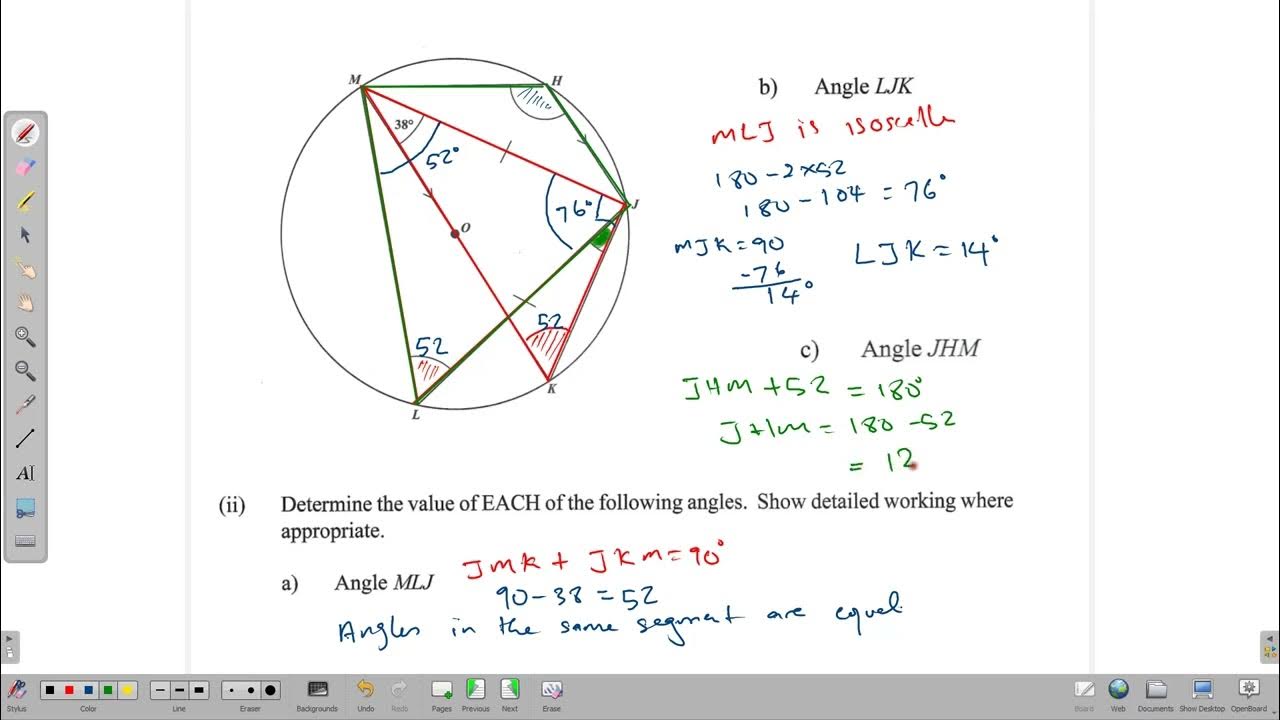 M
H
38°
52°
76°
J
O
52
52
K
L
b) Angle LJK
MLJ is isoscelle
180 - 2×52
180 - 104 = 76°
MJK = 90
-76
14°
LJK = 14°
c) Angle JHM
JHM + 52 = 180°
JHM = 180 - 52
= 12
(ii) Determine the value of EACH of the following angles. Show detailed working where
appropriate.
JMK + JKM = 90°
a) Angle MLJ
90 - 38 = 52
Angles in the same segment are equal
Stylus
Color
Line
Eraser
Backgrounds
Undo
Redo
Pages
Previous
Next
Erase
Board
Web
Documents
Show Desktop
OpenBoard